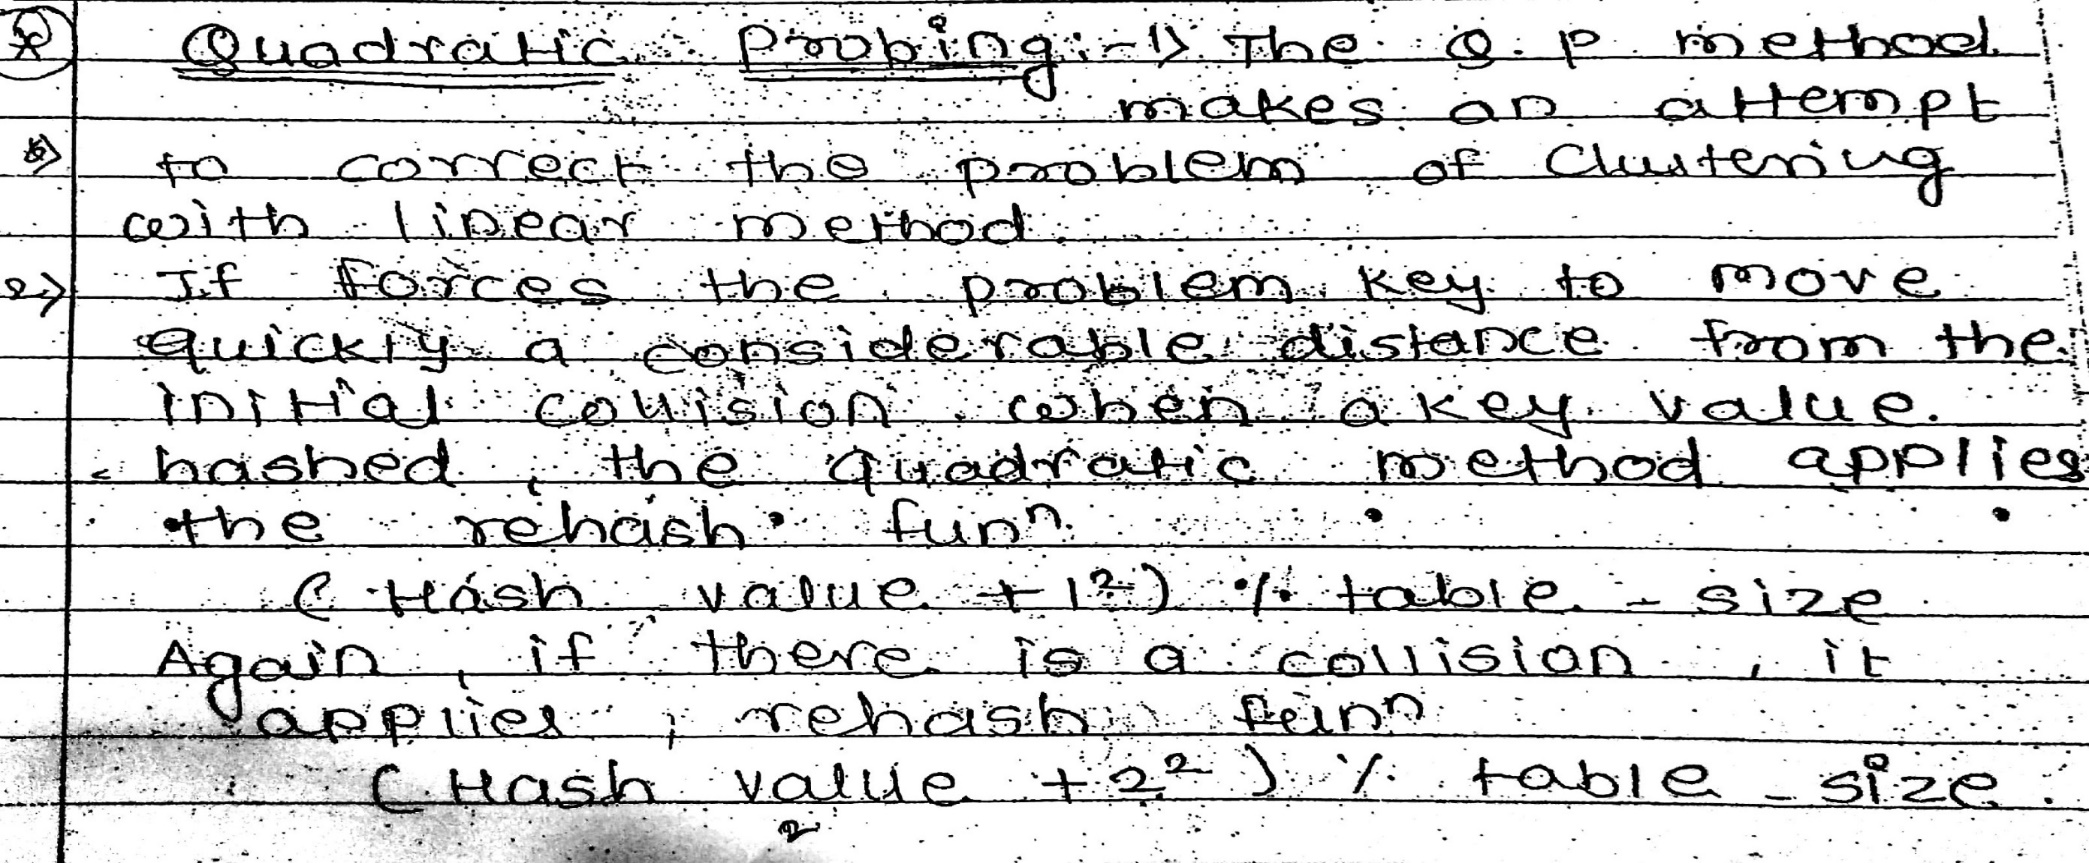 Quadratic Probing :- 1) The Q.P method
makes an attempt
to correct the problem of Clustering
with linear method.
2) If forces the problem key to move
quickly a considerable distance from the
initial collision . when a key value
hashed , the quadratic method applies
the rehash funⁿ.
( Hash value + 1²) % table - size
Again , if there is a collision , it
applies ; rehash funⁿ
( Hash value + 2² ) % table - size .
2